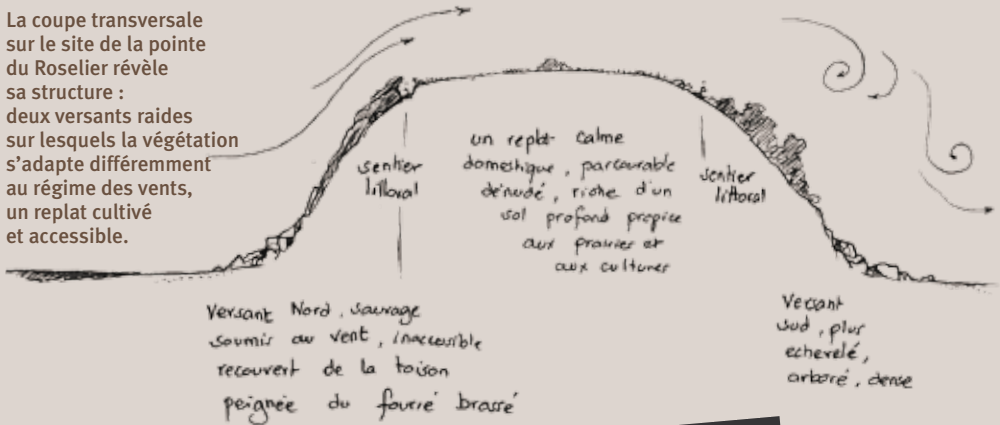 La coupe transversale
sur le site de la pointe
du Roselier révèle
sa structure :
deux versants raides
sur lesquels la végétation
s'adapte différemment
au régime des vents,
un replat cultivé
et accessible.
sentier
littoral
un replat calme
domestique, parcourable
dénudé, riche d'un
sol profond propice
aux prairies et
aux cultures
sentier
littoral
Versant Nord, sauvage
soumis au vent, inaccessible
recouvert de la toison
peignée du fourré brassé
Versant
sud, plus
echevelé,
arboré, dense